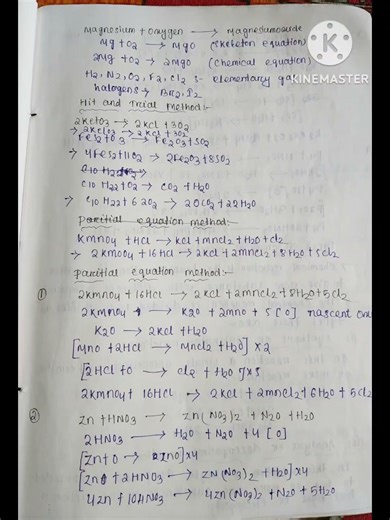 Magnesium + Oxygen → Magnesiumoxide
Mg + O2 → MgO (Skeleton equation)
2Mg + O2 → 2MgO (chemical equation)
H2, N2, O2, F2, Cl2 :- elementary gas
KINEMASTER
halogens :- Br2, I2
Hit and Trial Method:-
2KClO3 → 2KCl + 3O2
→ 2KClO3 → 2KCl + 3O2
FeS2 + O3 → Fe2O3 + SO2
→ 4FeS2 + 11O2 → 2Fe2O3 + 8SO2
C10H22
C10H22 + O2 → CO2 + H2O
→ C10H22 + 62O2 → 20CO2 + 22H2O
Partial equation method:-
KMnO4 + HCl → KCl + MnCl2 + H2O + Cl2
→ 2KMnO4 + 16HCl → 2KCl + 2MnCl2 + 8H2O + 5Cl2
Partial equation method:-
① 2KMnO4 + 16HCl → 2KCl + 2MnCl2 + 8H2O + 5Cl2
2KMnO4 → K2O + 2MnO + 5[O] nascent
K2O → 2KCl + H2O
[MnO + 2HCl → MnCl2 + H2O] × 2
[2HCl + O → Cl2 + H2O] × 5
2KMnO4 + 16HCl → 2KCl + 2MnCl2 + 6H2O + 5Cl
② Zn + HNO3 → Zn(NO3)2 + N2O + H2O
2HNO3 → H2O + N2O + 4[O]
[Zn + O → ZnO] × 4
[ZnO + 2HNO3 → ZN(NO3)2 + H2O] × 4
4Zn + 10HNO3 → 4Zn(NO3)2 + N2O + 5H2O